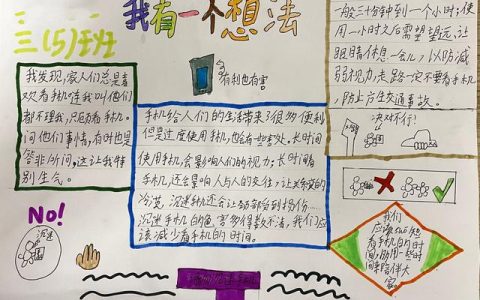 我有一个想法
三(5)班
有利也有害
我发现,家人们总是喜
欢看手机,连我叫他们
都不理我,只顾看手机。
问他们事情,有时也是
答非所问。这让我特
别生气。
手机给人们的生活带来了很多便利
但是过度使用手机,也会有些害处。长时间
使用手机,会影响人们的视力;长时间看
手机,还会影响人与人的交往,让关系变的
冷漠,沉迷手机还会让
沉迷手机的危害多得数不清,我们应
该减少看手机的时间。
一般三十分钟到一个小时;使
用一小时之后需要望远,让
眼睛休息一会儿,以防减
弱视力,走路一定不要看手机,
防止产生交通事故。
决对不行!
No!
沉迷
我们
应该
看手机的时
间,用一些时
间陪伴大
家。